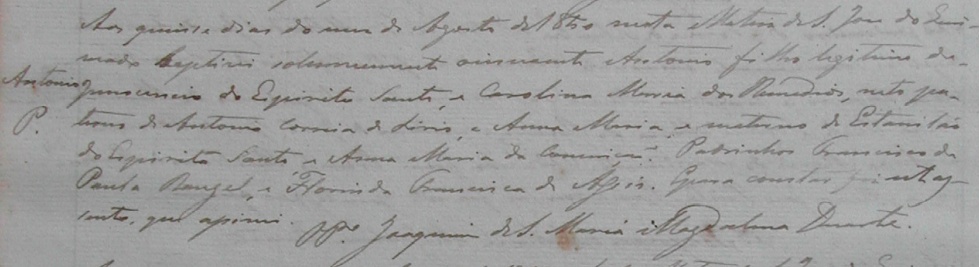 Aos quinse dias do mes de Agosto de 1860 nesta Matriz de S. Jose do
baptisei solemnemente Antonio filho legitimo de
Antonio
do Espirito Santo, e Carolina Maria dos Remedios, neto pa-
P.
terno de Antonio Correia de, e Anna Maria, e materno de Estanisláo
do Espirito Santo e Anna Maria da Conceiçaõ. Padrinhos Francisco de
Paula Rangel, e Florinda Francisca de Assis. E para constar fiz
sento, que assinei.
Joaquim de S. Maria Magdalena Duarte.